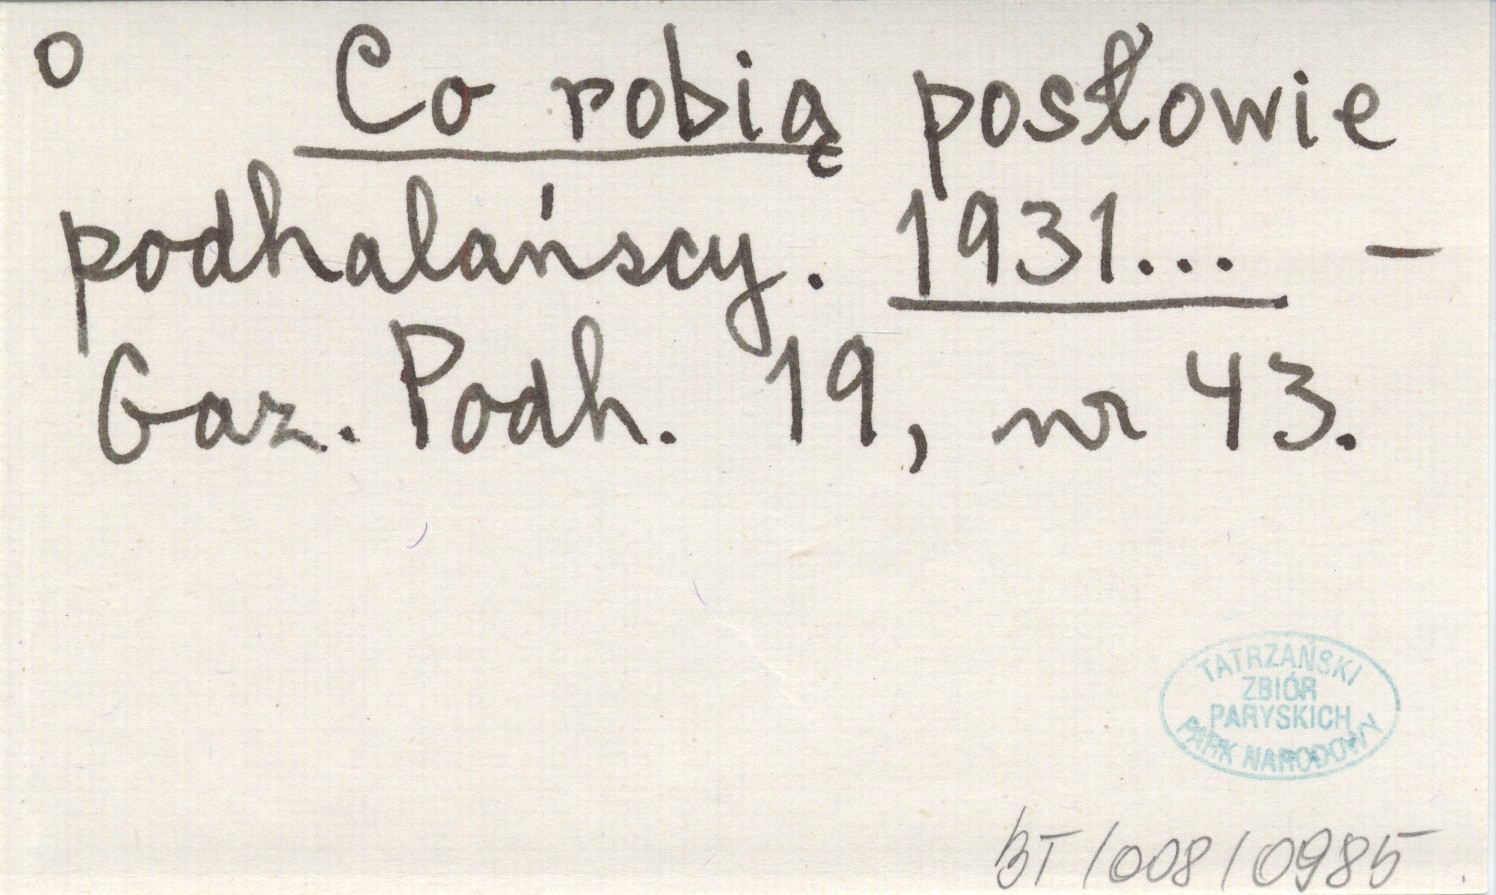 o Co robią posłowie
podhalańscy. 1931... –
Gaz. Podh. 19, nr 43.
TATRZAŃSKI
ZBIÓR
PARYSKICH
PARK NARODOWY
BT/008/0985